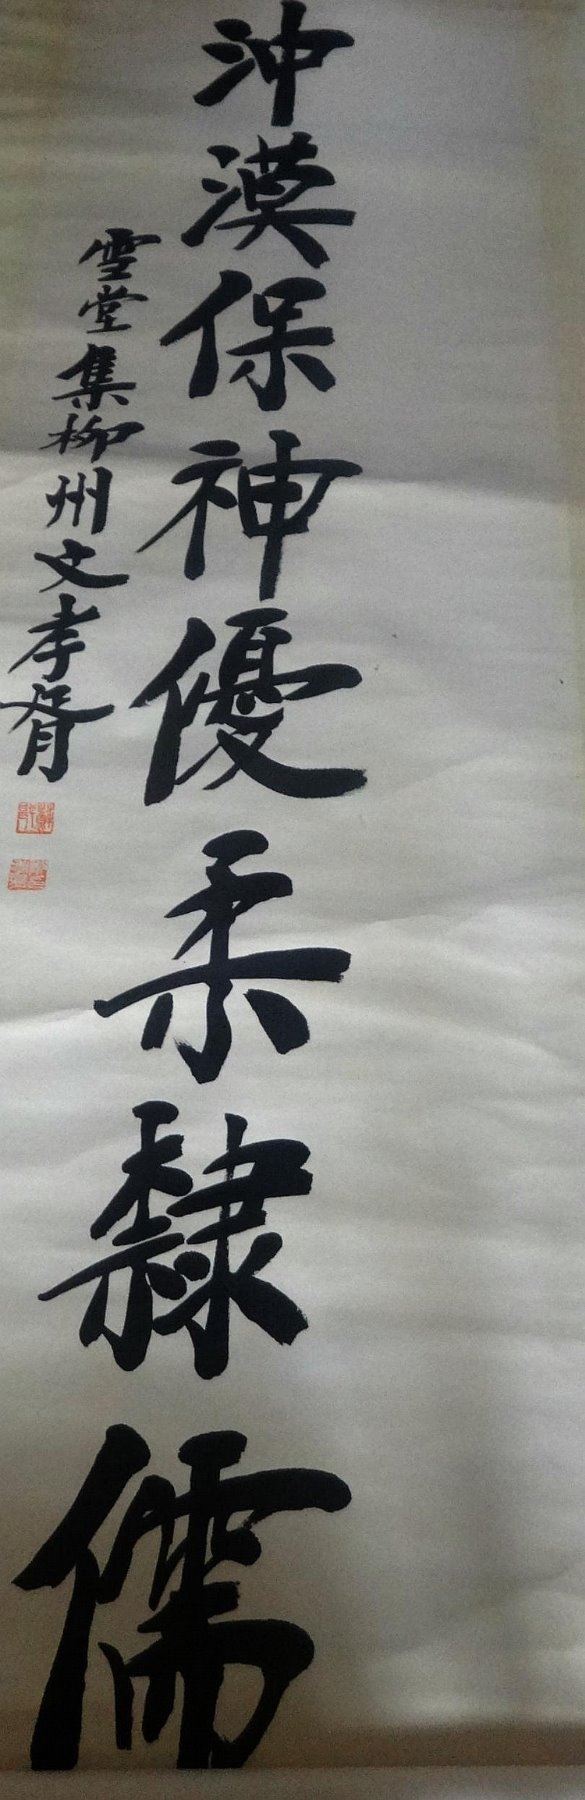 沖漠保神優柔隸儒
雪堂集柳州文孝胥